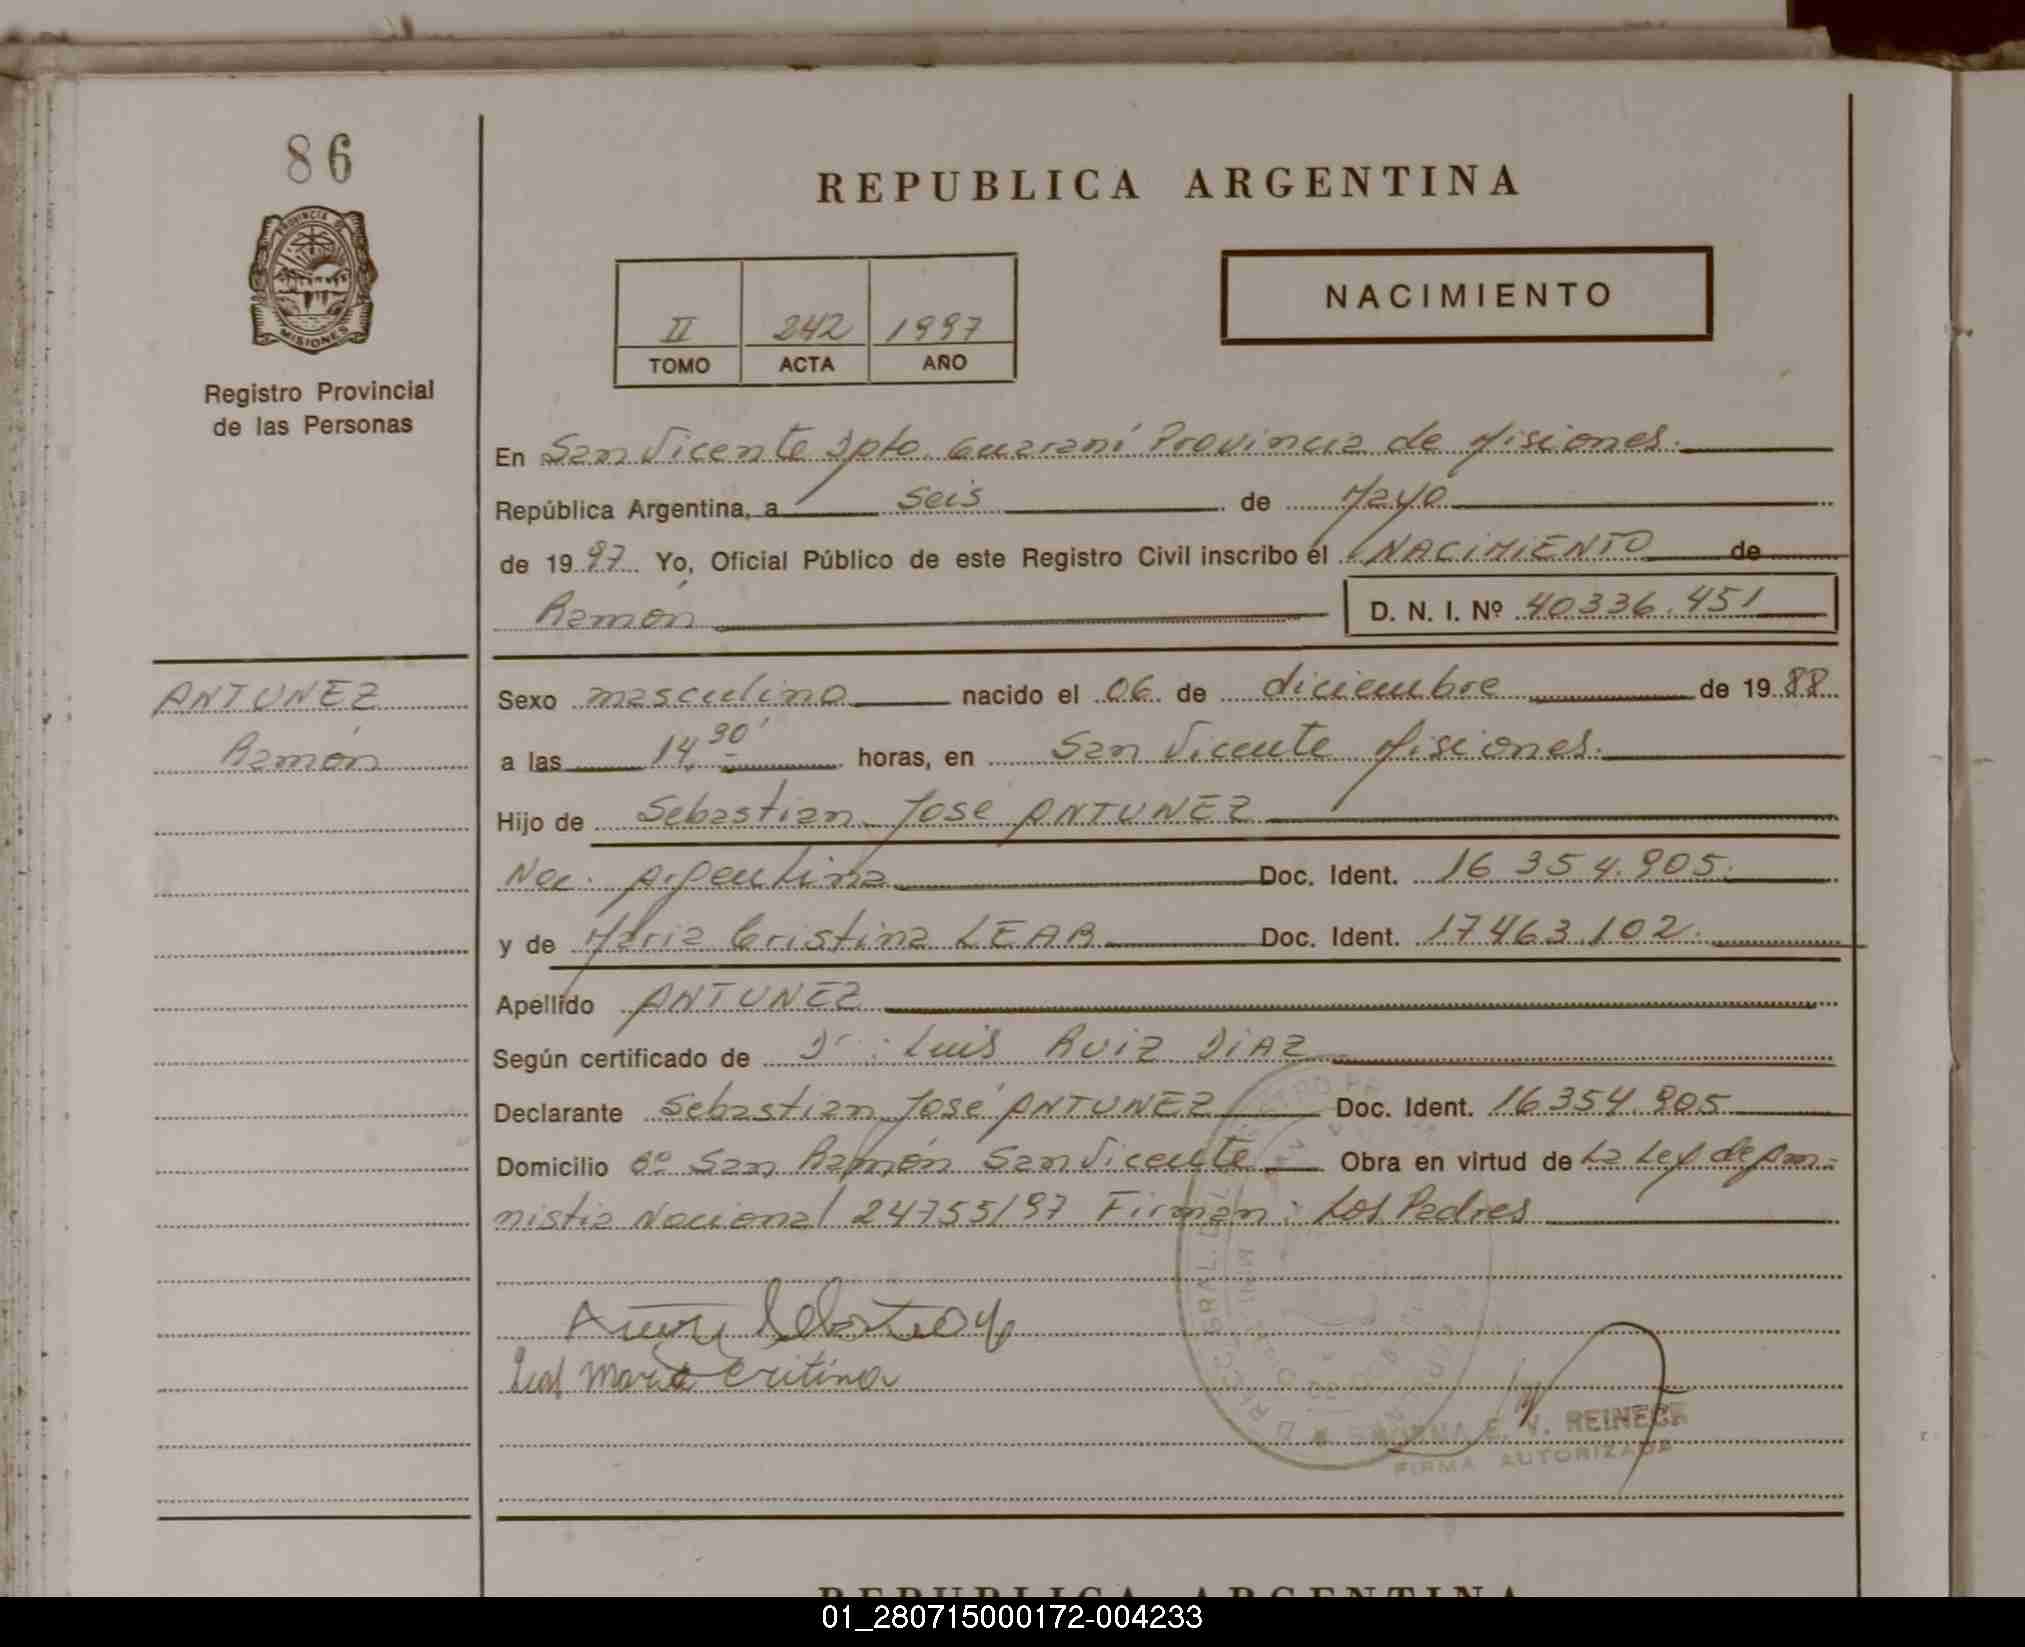 86
PROVINCIA DE
MISIONES
Registro Provincial
de las Personas
REPUBLICA ARGENTINA
NACIMIENTO
II 242 1997
TOMO ACTA AÑO
En San Vicente Dpto. Guaraní Provincia de Misiones.
República Argentina, a seis de Mayo
de 1997 Yo, Oficial Público de este Registro Civil inscribo el NACIMIENTO de
Ramón D. N. I. Nº 40336.451
ANTUNEZ
Ramón
Sexo masculino nacido el 06 de diciembre de 1988
a las 14,30' horas, en San Vicente Misiones.
Hijo de Sebastian José ANTUNEZ
Nac. Argentina Doc. Ident. 16 354.905.
y de Maria Cristina LEAR Doc. Ident. 17463.102.
Apellido ANTUNEZ
Según certificado de Dr: Luis RUIZ DIAZ
Declarante Sebastian José ANTUNEZ Doc. Ident. 16354.905
Domicilio Bº San Ramón San Vicente Obra en virtud de La Ley de Am-
nistia Nacional 24755/97 Firman: Los Padres
Maria Critina
E. V. REINECK
FIRMA AUTORIZADA
REPUBLICA ARGENTINA
01_280715000172-004233